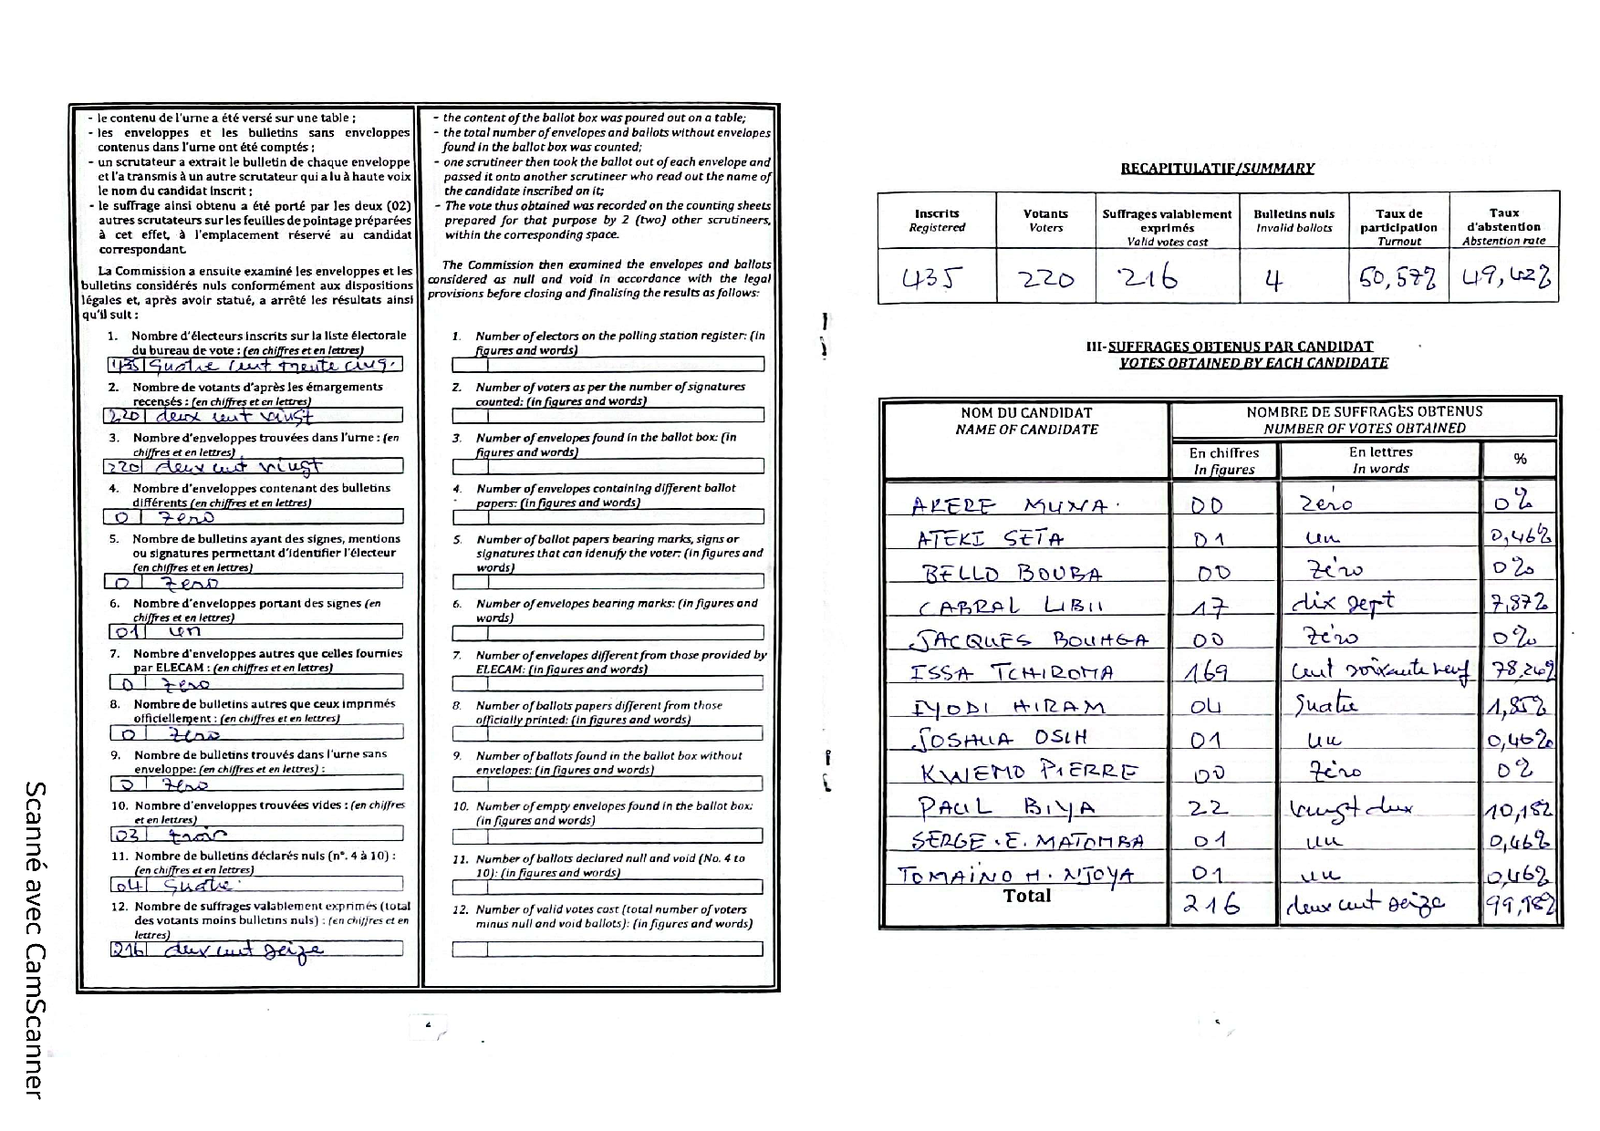 - le contenu de l'urne a été versé sur une table ;
- les enveloppes et les bulletins sans enveloppes
contenus dans l'urne ont été comptés ;
- un scrutateur a extrait le bulletin de chaque enveloppe
et l'a transmis à un autre scrutateur qui a lu à haute voix
le nom du candidat inscrit ;
- le suffrage ainsi obtenu a été porté par les deux (02)
autres scrutateurs sur les feuilles de pointage préparées
à cet effet, à l'emplacement réservé au candidat
correspondant.
La Commission a ensuite examiné les enveloppes et les
bulletins considérés nuls conformément aux dispositions
légales et, après avoir statué, a arrêté les résultats ainsi
qu'il suit :
1. Nombre d'électeurs inscrits sur la liste électorale
du bureau de vote : (en chiffres et en lettres)
435 quatre cent trente cinq.
2. Nombre de votants d'après les émargements
recensés : (en chiffres et en lettres)
220 deux cent vingt
3. Nombre d'enveloppes trouvées dans l'urne : (en
chiffres et en lettres)
220 deux cent vingt
4. Nombre d'enveloppes contenant des bulletins
différents (en chiffres et en lettres)
0 zero
5. Nombre de bulletins ayant des signes, mentions
ou signatures permettant d'identifier l'électeur
(en chiffres et en lettres)
0 zero
6. Nombre d'enveloppes portant des signes (en
chiffres et en lettres)
01 un
7. Nombre d'enveloppes autres que celles fournies
par ELECAM : (en chiffres et en lettres)
0 zero
8. Nombre de bulletins autres que ceux imprimés
officiellement : (en chiffres et en lettres)
0 zero
9. Nombre de bulletins trouvés dans l'urne sans
enveloppe: (en chiffres et en lettres) :
0 zero
10. Nombre d'enveloppes trouvées vides : (en chiffres
et en lettres)
03 trois
11. Nombre de bulletins déclarés nuls (n°. 4 à 10) :
(en chiffres et en lettres)
04 quatre
12. Nombre de suffrages valablement exprimés (total
des votants moins bulletins nuls) : (en chiffres et en
lettres)
216 deux cent seize
- the content of the ballot box was poured out on a table;
- the total number of envelopes and ballots without envelopes
found in the ballot box was counted;
- one scrutineer then took the ballot out of each envelope and
passed it onto another scrutineer who read out the name of
the candidate inscribed on it;
- The vote thus obtained was recorded on the counting sheets
prepared for that purpose by 2 (two) other scrutineers,
within the corresponding space.
The Commission then examined the envelopes and ballots
considered as null and void in accordance with the legal
provisions before closing and finalising the results as follows:
1. Number of electors on the polling station register: (in
figures and words)
2. Number of voters as per the number of signatures
counted: (in figures and words)
3. Number of envelopes found in the ballot box: (in
figures and words)
4. Number of envelopes containing different ballot
papers: (in figures and words)
5. Number of ballot papers bearing marks, signs or
signatures that can identify the voter: (in figures and
words)
6. Number of envelopes bearing marks: (in figures and
words)
7. Number of envelopes different from those provided by
ELECAM: (in figures and words)
8. Number of ballots papers different from those
officially printed: (in figures and words)
9. Number of ballots found in the ballot box without
envelopes: (in figures and words)
10. Number of empty envelopes found in the ballot box:
(in figures and words)
11. Number of ballots declared null and void (No. 4 to
10): (in figures and words)
12. Number of valid votes cast (total number of voters
minus null and void ballots): (in figures and words)
RECAPITULATIF/SUMMARY
Inscrits Votants Suffrages valablement Bulletins nuls Taux de Taux
Registered Voters exprimés Invalid ballots participation d'abstention
Valid votes cast Turnout Abstention rate
435 220 216 4 50,57% 49,42%
III-SUFFRAGES OBTENUS PAR CANDIDAT
VOTES OBTAINED BY EACH CANDIDATE
NOM DU CANDIDAT NOMBRE DE SUFFRAGES OBTENUS
NAME OF CANDIDATE NUMBER OF VOTES OBTAINED
En chiffres En lettres %
In figures In words
AKERE MUNA. 00 zéro 0%
ATEKI SETA 01 un 0,46%
BELLO BOUBA 00 zéro 0%
CABRAL LIBII 17 dix sept 7,87%
JACQUES BOUHGA 00 zéro 0%
ISSA TCHIROMA 169 cent soixante neuf 78,24%
IYODI HIRAM 04 quatre 1,85%
JOSHUA OSIH 01 un 0,46%
KWEMO PIERRE 00 zéro 0%
PAUL BIYA 22 vingt deux 10,18%
SERGE.E. MATOMBA 01 un 0,46%
TOMAINO H. NJOYA 01 un 0,46%
Total 216 deux cent seize 99,98%
Scanné avec CamScanner